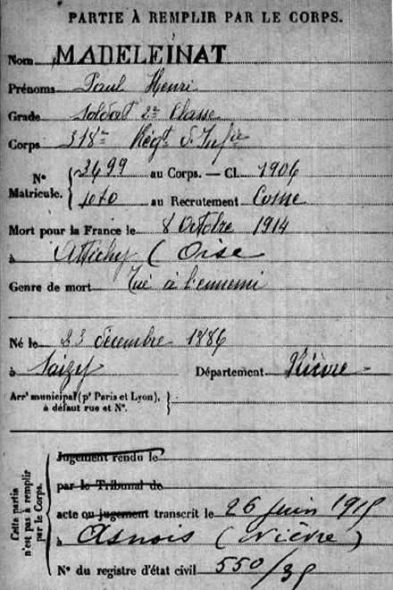 PARTIE À REMPLIR PAR LE CORPS.
Nom MADELEINAT
Prénoms Paul Henri
Grade Soldat 2e Classe
Corps 318me Régt d'Infie
N° Matricule. { 3499 au Corps. — Cl. 1906
1010 au Recrutement Cosne
Mort pour la France le 8 Octobre 1914
à Attichy (Oise
Genre de mort Tué à l'ennemi
Né le 23 décembre 1886
à Saizy Département Nièvre
Arrt municipal (pr Paris et Lyon), à défaut rue et N°. }
Cette partie n'est pas à remplir par le Corps.
Jugement rendu le
par le Tribunal de
acte ou jugement transcrit le 26 juin 1915
à Asnois (Nièvre)
N° du registre d'état civil 550/35